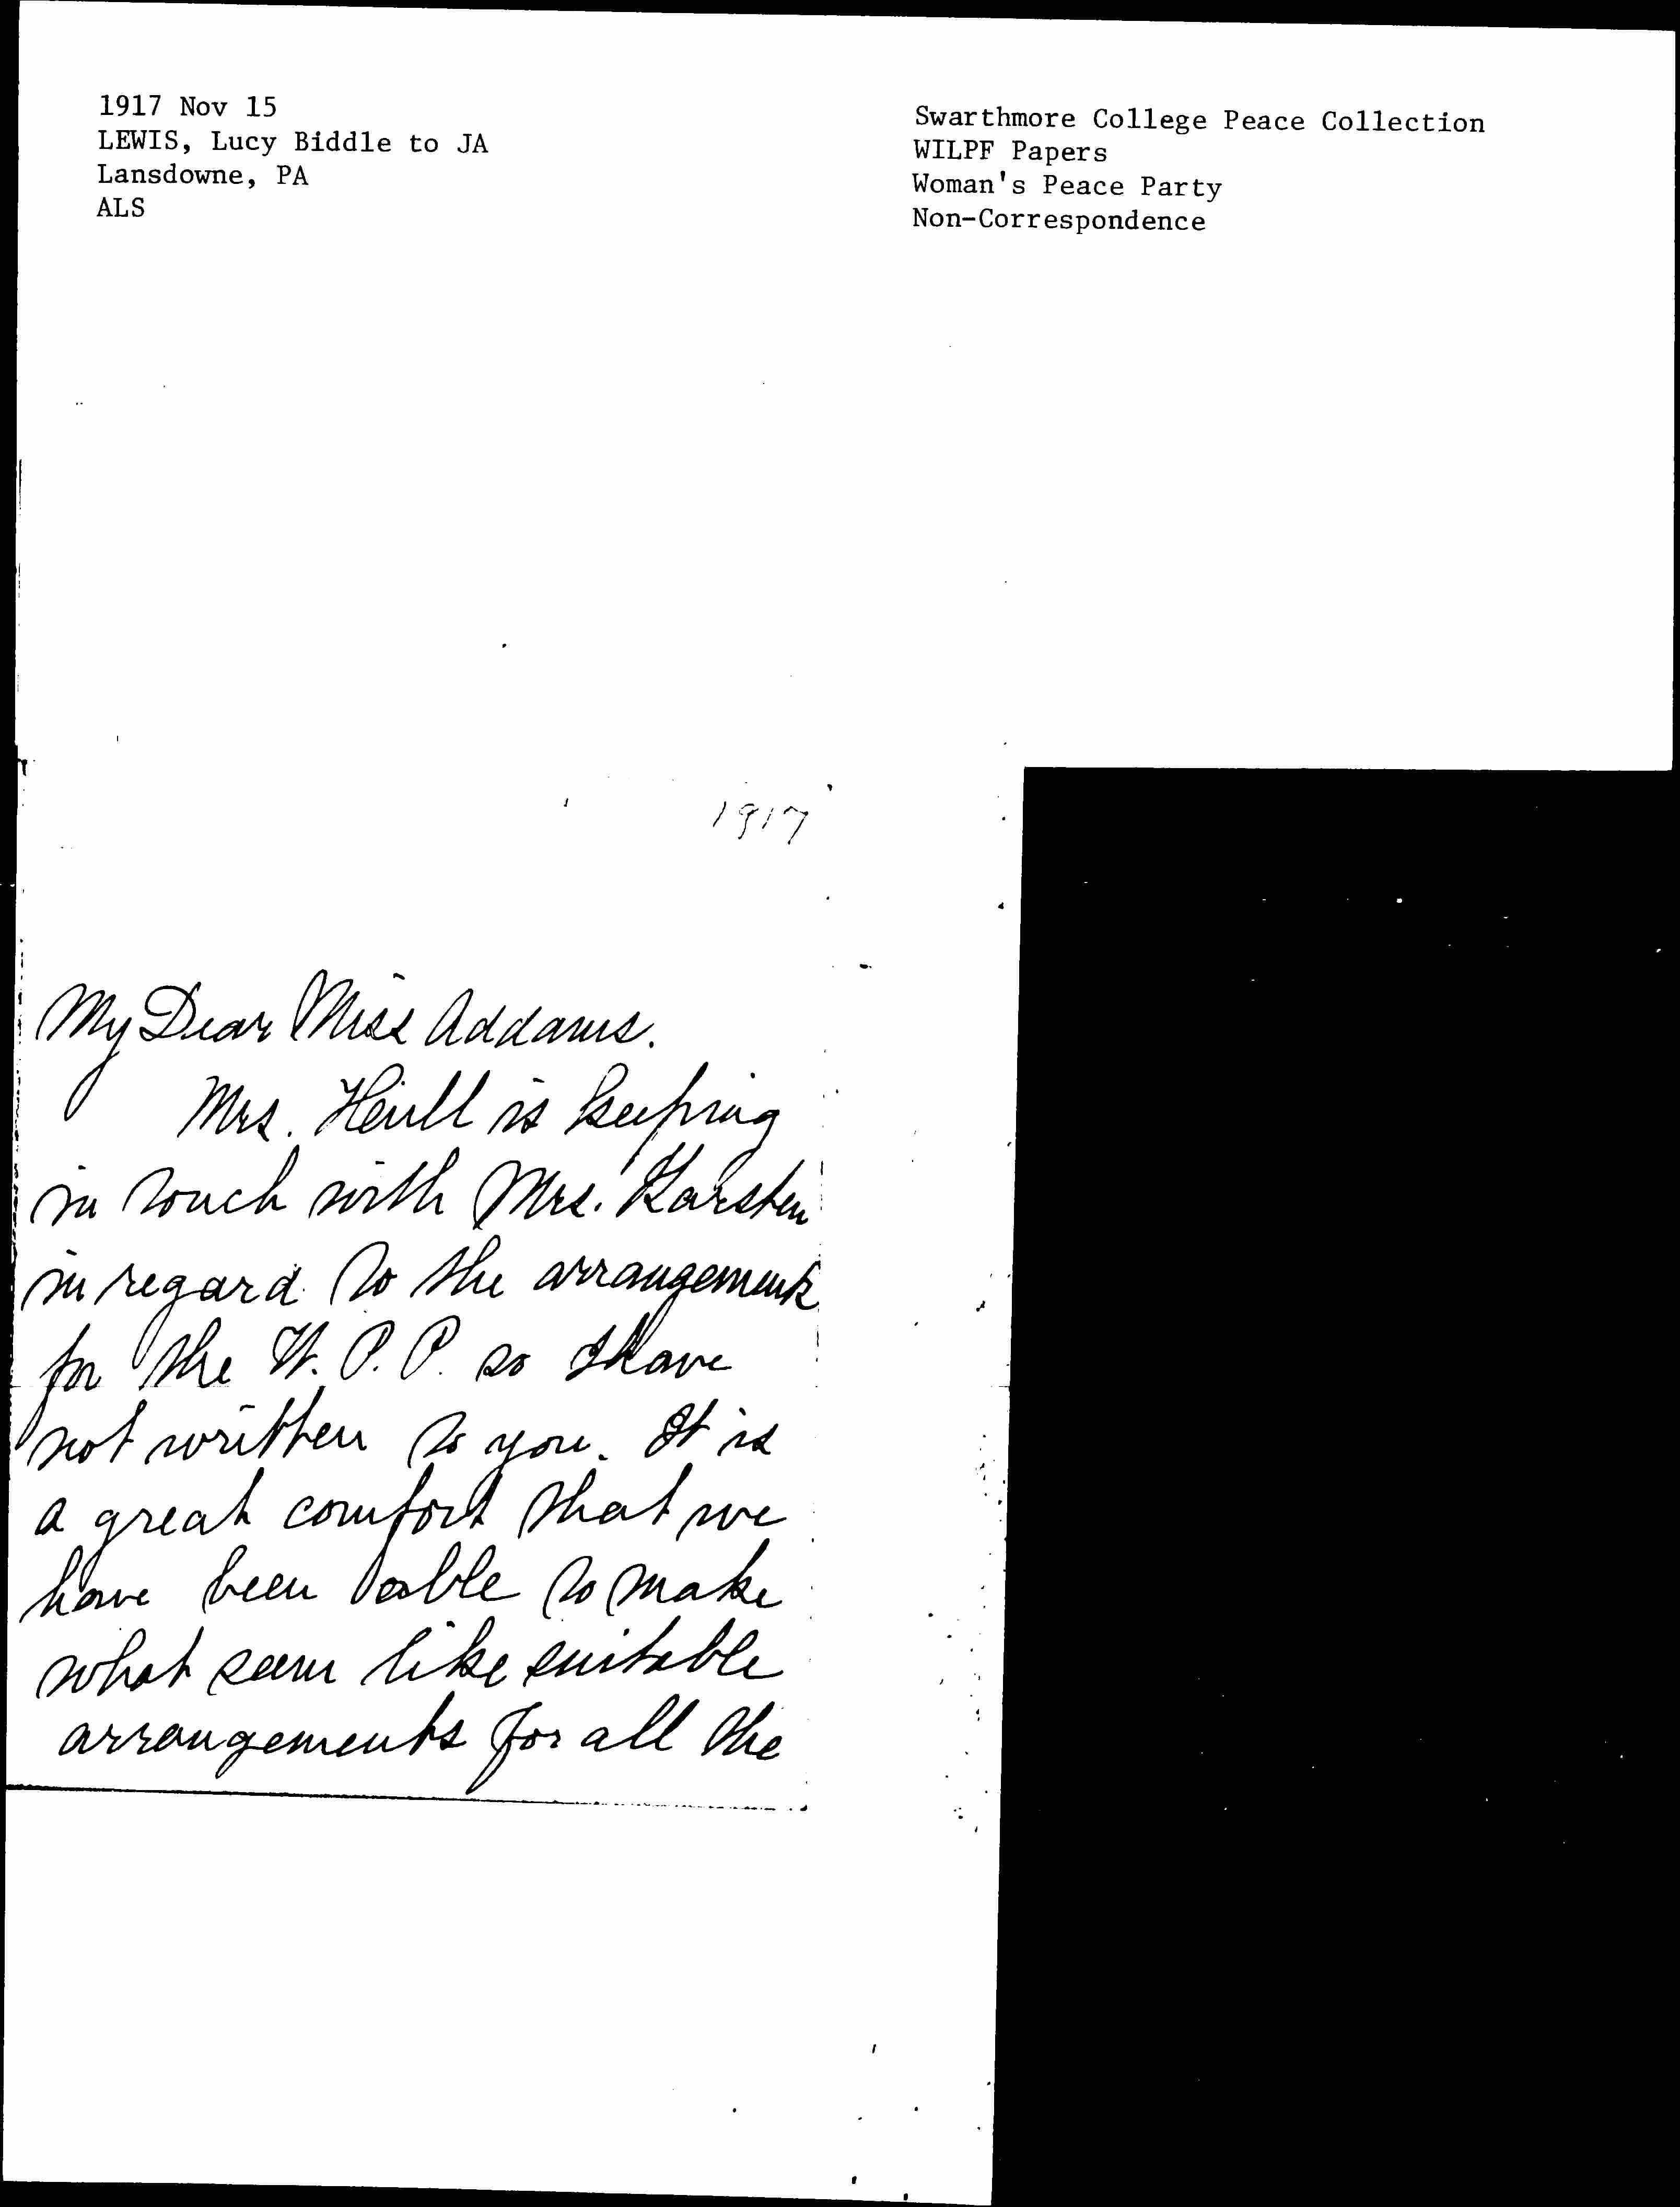 1917 Nov 15
LEWIS, Lucy Biddle to JA
Lansdowne, PA
ALS
Swarthmore College Peace Collection
WILPF Papers
Woman's Peace Party
Non-Correspondence
1917
My Dear Miss Addams.
Mrs. is keeping
in touch with Mrs. Karsten
in regard to the arrangements
for the W. P. P. so I have
not written to you. It is
a great comfort that we
have been able to make
what seem like suitable
arrangements for all the